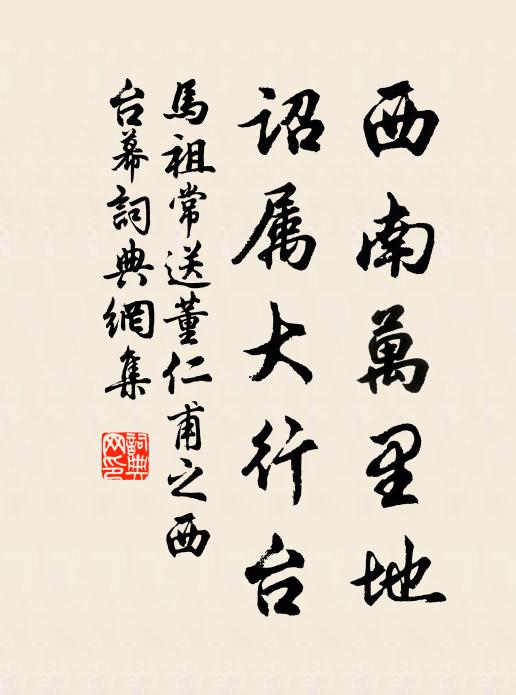 西南萬里地
诏属大行台
馬祖常送董仁甫之西
台幕詞典網集
詞典網印